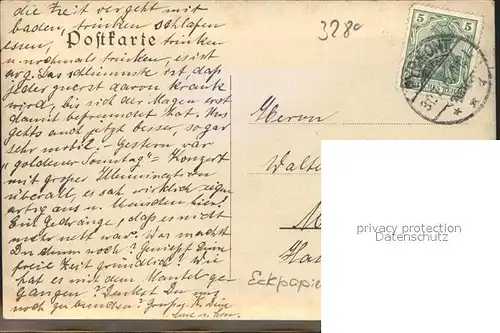 die Zeit vergeht mit
baden, trinken schlafen
essen, trinken
Postkarte
u nochmals trinken, es ist
arg. Das schlimmste ist, daß
jeder zuerst davon krank
wird, bis sich der Magen erst
damit befreundet hat. Uns
gehts auch jetzt besser, sogar
sehr mobil. - Gestern war
"goldener Sonntag" = Konzert
mit großer Illumination
überall, es sah wirklich eigen
artig aus u. Menschen hier!
Ein Gedränge, daß es nicht
mehr nett war. Was machst
Du denn noch? Genießt Deine
freie Zeit gründlich? Wie
hat es mit dem Mantel ge-
gangen? Denkst Du uns
noch zu besuchen?
3280
5 5
PYRMONT
Herrn
Walte
M
Ha
Eckpapie
privacy protection
Datenschutz